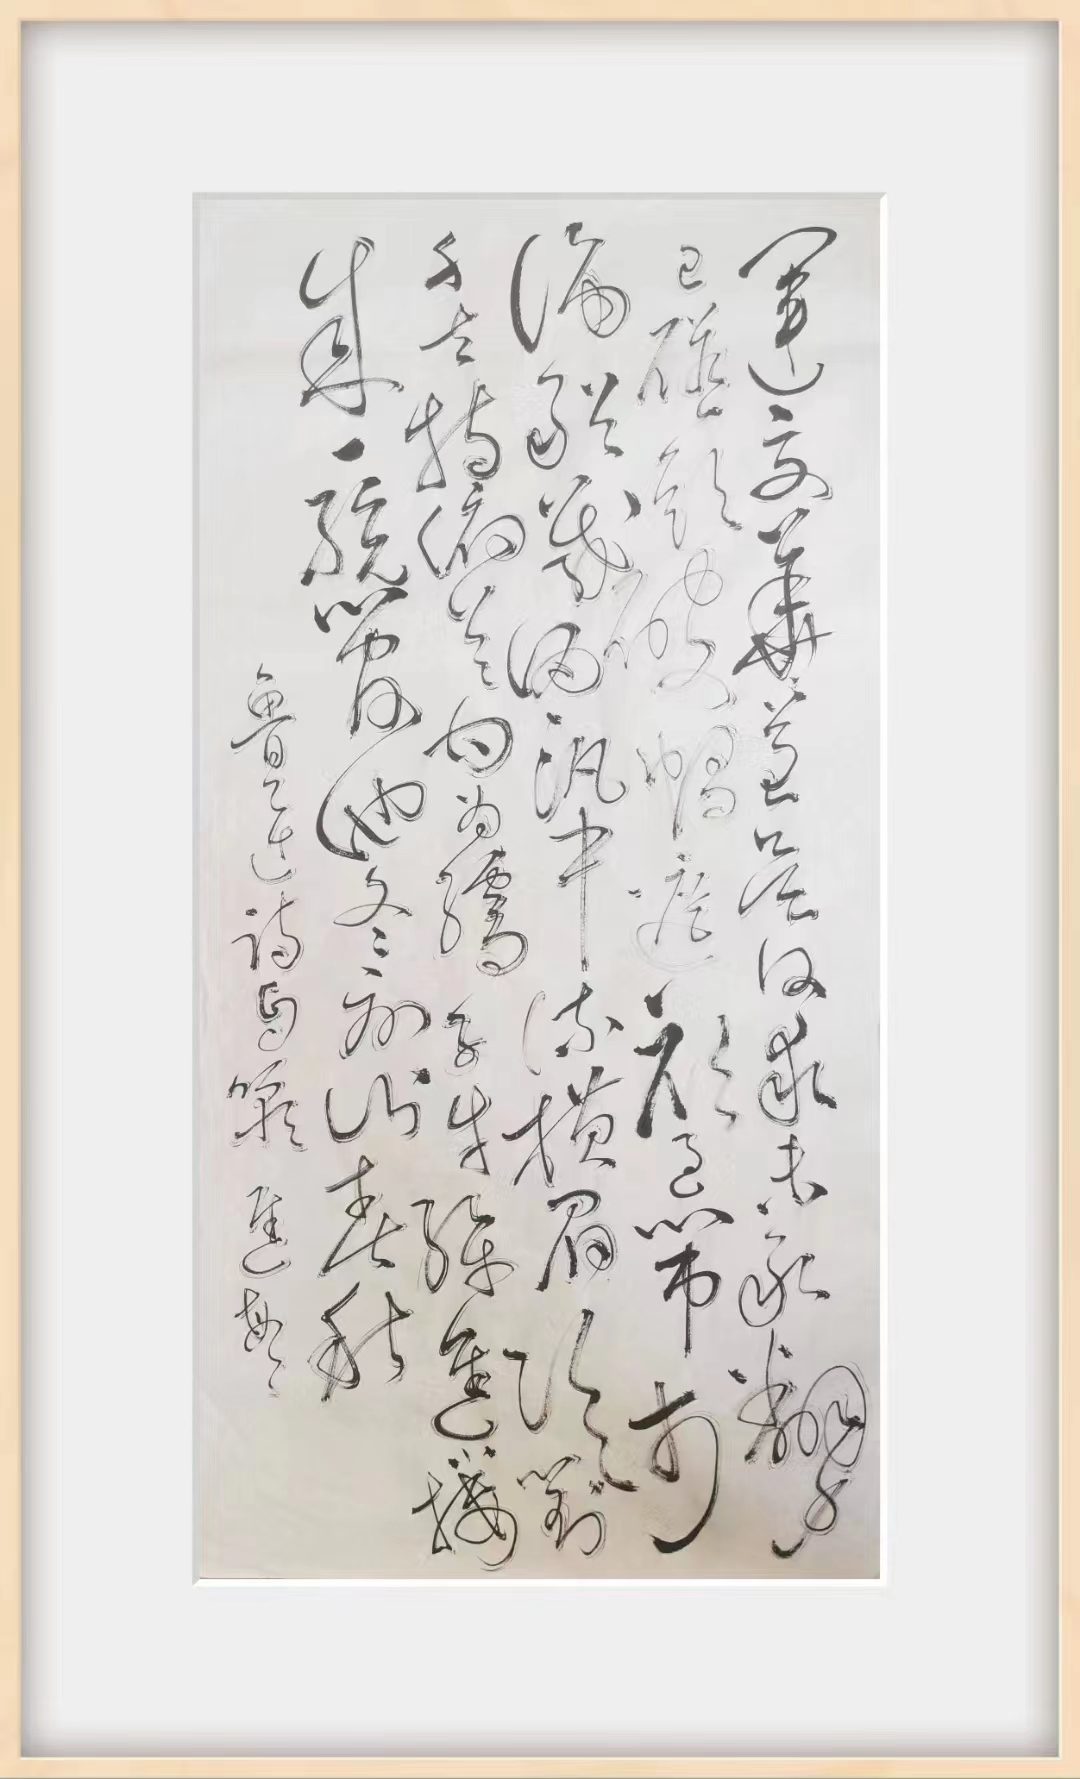 運交華蓋欲何求未敢翻身
已碰頭破帽遮顏過鬧市
漏船載酒泛中流橫眉冷對
千夫指俯首甘為孺子牛躲進小樓
成一統管他冬夏與春秋
魯迅詩自嘲